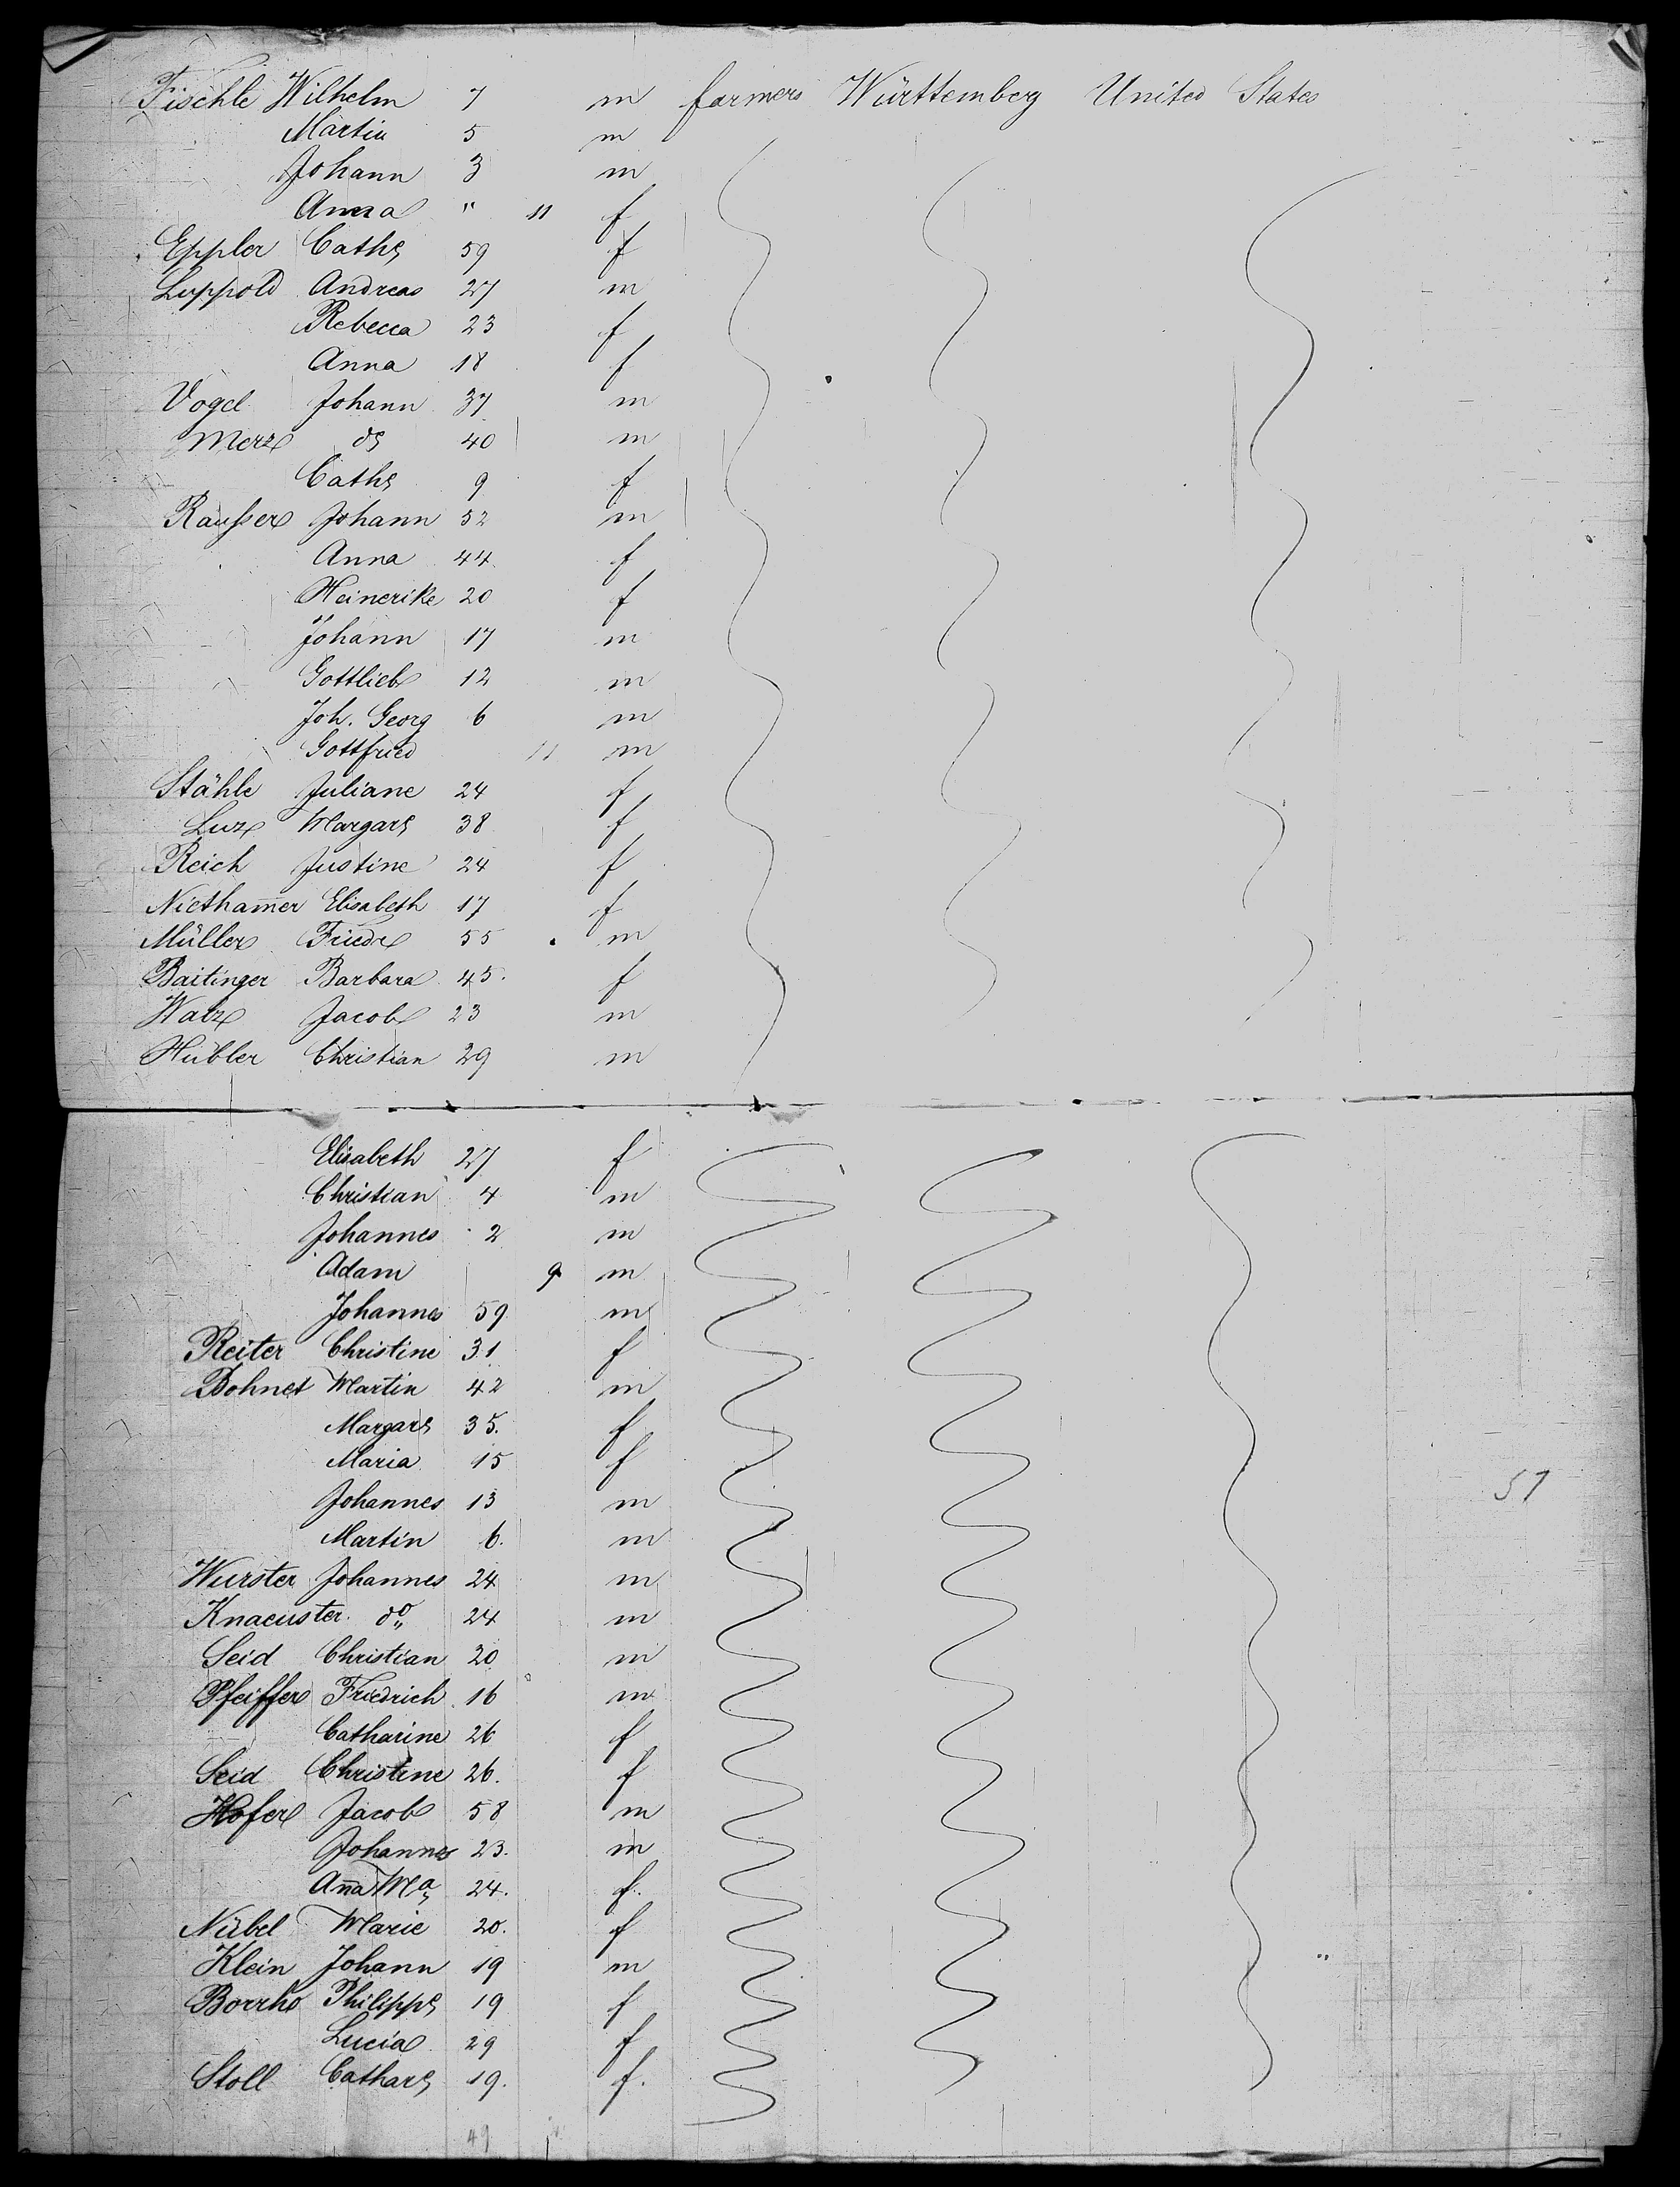 Fischle Wilhelm 7 m farmers Württemberg United States
Martin 5 m
Johann 3 m
Anna " 11 f
Eppler Cath. 59 f
Luppold Andreas 27 m
Rebecca 23 f
Anna 18 f
Vogel Johann 37 m
Merz do 40 m
Cath. 9 f
Rausser Johann 52 m
Anna 44 f
Heinerike 20 f
Johann 17 m
Gottlieb 12 m
Joh. Georg 6 m
Gottfried 11 m
Stähle Juliane 24 f
Luz Margar. 38 f
Reich Justine 24 f
Nietham̅er Elisabeth 17 f
Müller Friedr 55 m
Baitinger Barbara 45. f
Walz Jacob 23 m
Hübler Christian 29 m
Elisabeth 27 f
Christian 4 m
Johannes 2 m
Adam 9 m
Johannes 59 m
Reiter Christine 31 f
Bohnet Martin 42 m
Margar. 35. f
Maria 15 f
Johannes 13 m
51
Martin 6. m
Wurster Johannes 24 m
Knaeuster do 24 m
Seid Christian 20 m
Pfeiffer Friedrich 16 m
Catharine 26 f
Seid Christine 26. f
Hofer Jacob 58 m
Johannes 23. m
An̅a Ma 24. f.
Nübel Marie 20. f
Klein Johann 19 m "
Borrho Philipp. 19 f
Lucia 29 f
Stoll Cathar. 19. f.
49